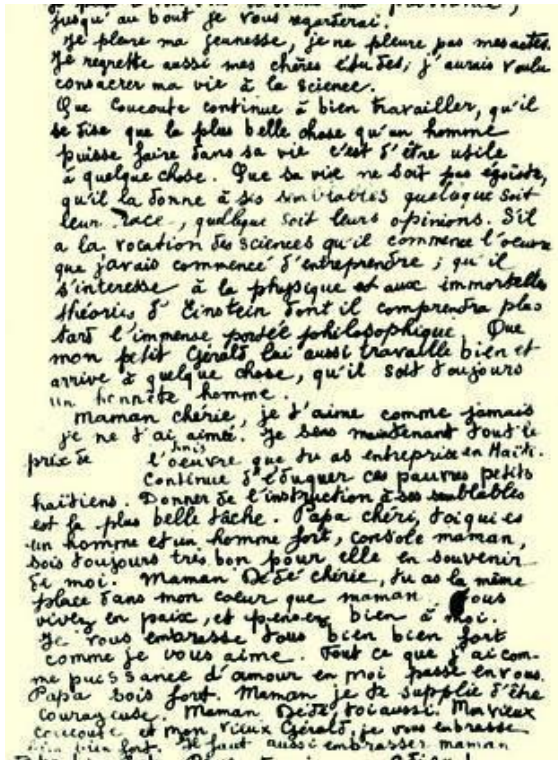 jusqu'au bout je vous regarderai.
Je pleure ma jeunesse, je ne pleure pas mes actes.
Je regrette aussi mes chères études, j'aurais voulu
consacrer ma vie à la science.
Que Coucoute continue à bien travailler, qu'il
se dise que la plus belle chose qu'un homme
puisse faire dans sa vie c'est d'être utile
à quelque chose. Que sa vie ne soit pas égoïste,
qu'il la donne à ses semblables quelque soit
leur race, quelque soit leurs opinions. S'il
a la vocation des sciences qu'il commence l'oeuvre
que j'avais commencé d'entreprendre; qu'il
s'interesse à la physique et aux immortelles
théories d'Einstein dont il comprendra plus
tard l'immense portée philosophique. Que
mon petit Gérald, lui aussi travaille bien et
arrive à quelque chose, qu'il soit toujours
un honnête homme.
Maman chérie, je t'aime comme jamais
je ne t'ai aimée. Je sens maintenant tout le
prix de l'oeuvre que tu as entreprise en Haïti.
Continue d'éduquer ces pauvres petits
haïtiens. Donner de l'instruction à ses semblables
est la plus belle tâche. Papa chéri, toi qui es
un homme et un homme fort, console maman,
sois toujours très bon pour elle en souvenir
de moi. Maman Dédé chérie, tu as la même
place dans mon coeur que maman. Vous
vivez en paix, et pensez bien à moi.
Je vous embrasse tous bien bien fort
comme je vous aime. Tout ce que j'ai com-
me puissance d'amour en moi passe en vous.
Papa sois fort. Maman je te supplie d'être
courageuse. Maman Dédé, toi aussi. Mon vieux
coucoute et mon vieux Gérald, je vous embrasse
bien bien fort. Il faut aussi embrasser maman